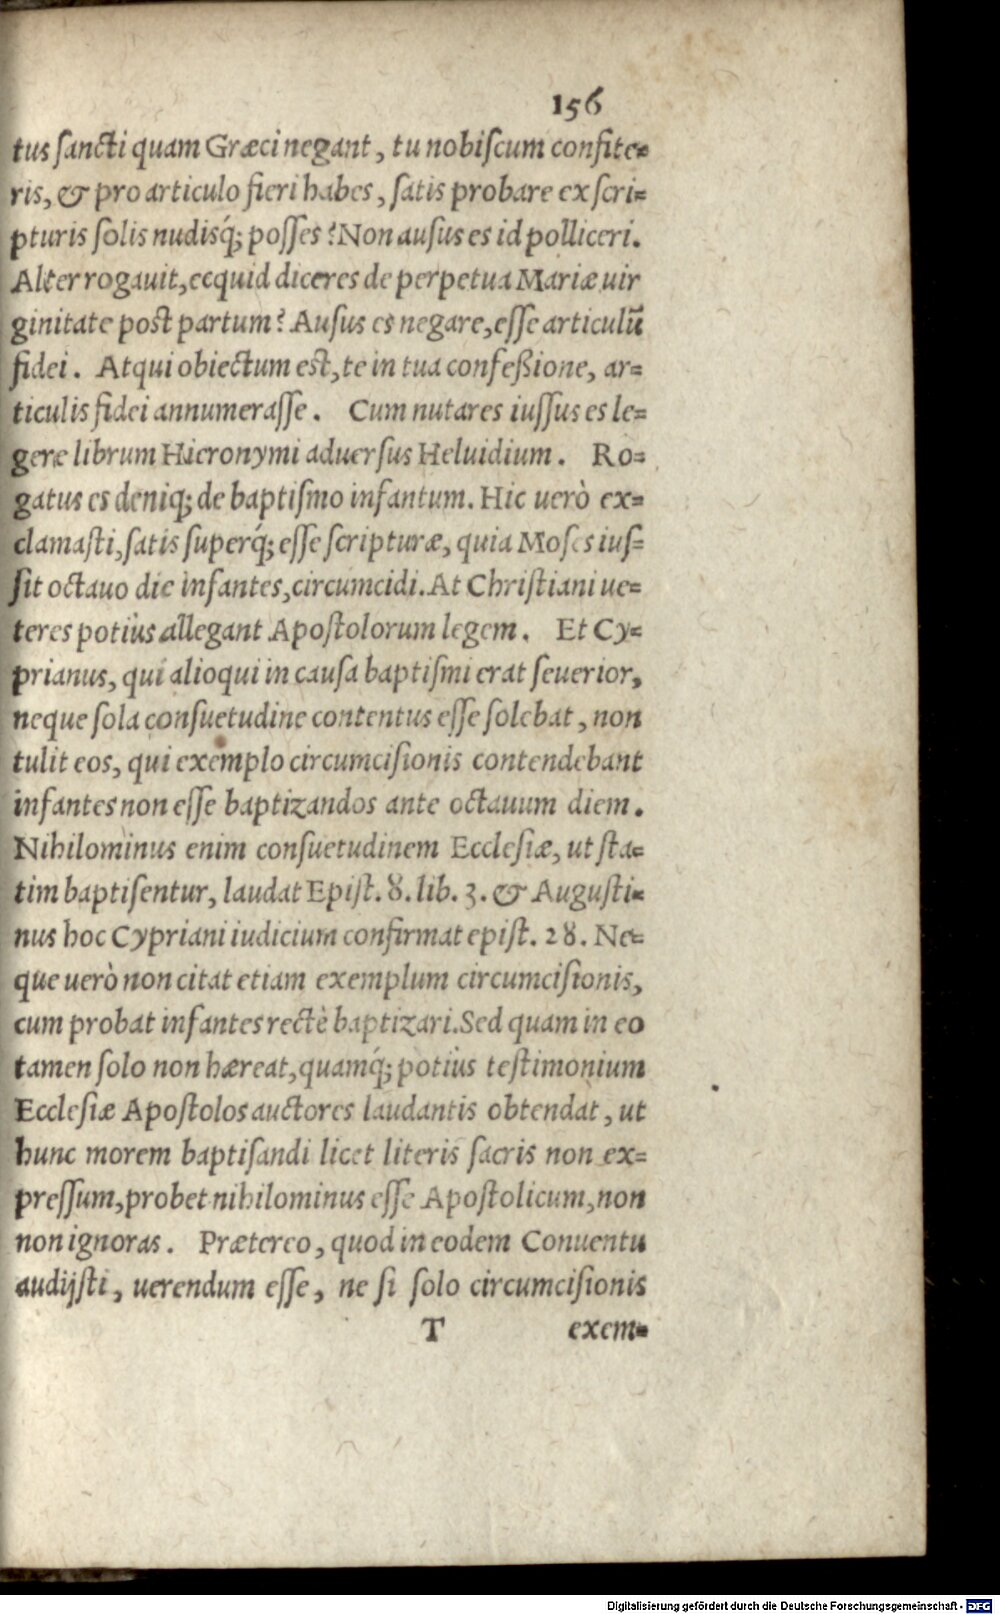 156
tus ſancti quam Græci negant, tu nobiſcum confite=
ris, & pro articulo fieri habes, ſatis probare ex ſcri=
pturis ſolis nudisq́; poſſes? Non auſus es id polliceri.
Alter rogauit, ecquid diceres de perpetua Mariæ uir
ginitate post partum? Auſus es negare, eſſe articulū
fidei. Atqui obiectum est, te in tua confeßione, ar=
ticulis fidei annumeraſſe. Cum nutares iuſſus es le=
gere librum Hieronymi aduerſus Heluidium. Ro=
gatus es deniq; de baptiſmo infantum. Hic uerò ex=
clamaſti, ſatis ſuperq́; eſſe ſcripturæ, quia Moſes iuſ=
ſit octauo die infantes, circumcidi. At Chriſtiani ue=
teres potiùs allegant Apoſtolorum legem. Et Cy=
prianus, qui alioqui in cauſa baptiſmi erat ſeuerior,
neque ſola conſuetudine contentus eſſe ſolebat, non
tulit eos, qui exemplo circumciſionis contendebant
infantes non eſſe baptizandos ante octauum diem.
Nihilominus enim conſuetudinem Eccleſiæ, ut ſta=
tim baptiſentur, laudat Epiſt. 8. lib. 3. & Auguſti=
nus hoc Cypriani iudicium confirmat epiſt. 28. Ne=
que uerò non citat etiam exemplum circumciſionis,
cum probat infantes rectè baptizari. Sed quam in eo
tamen ſolo non hæreat, quamq́; potiùs teſtimonium
Eccleſiæ Apoſtolos auctores laudantis obtendat, ut
hunc morem baptiſandi licet literis ſacris non ex=
preſſum, probet nihilominus eſſe Apoſtolicum, non
non ignoras. Prætereo, quod in eodem Conuentu
audijſti, uerendum eſſe, ne ſi ſolo circumciſionis
T exem=
Digitalisierung gefördert durch die Deutsche Forschungsgemeinschaft - DFG